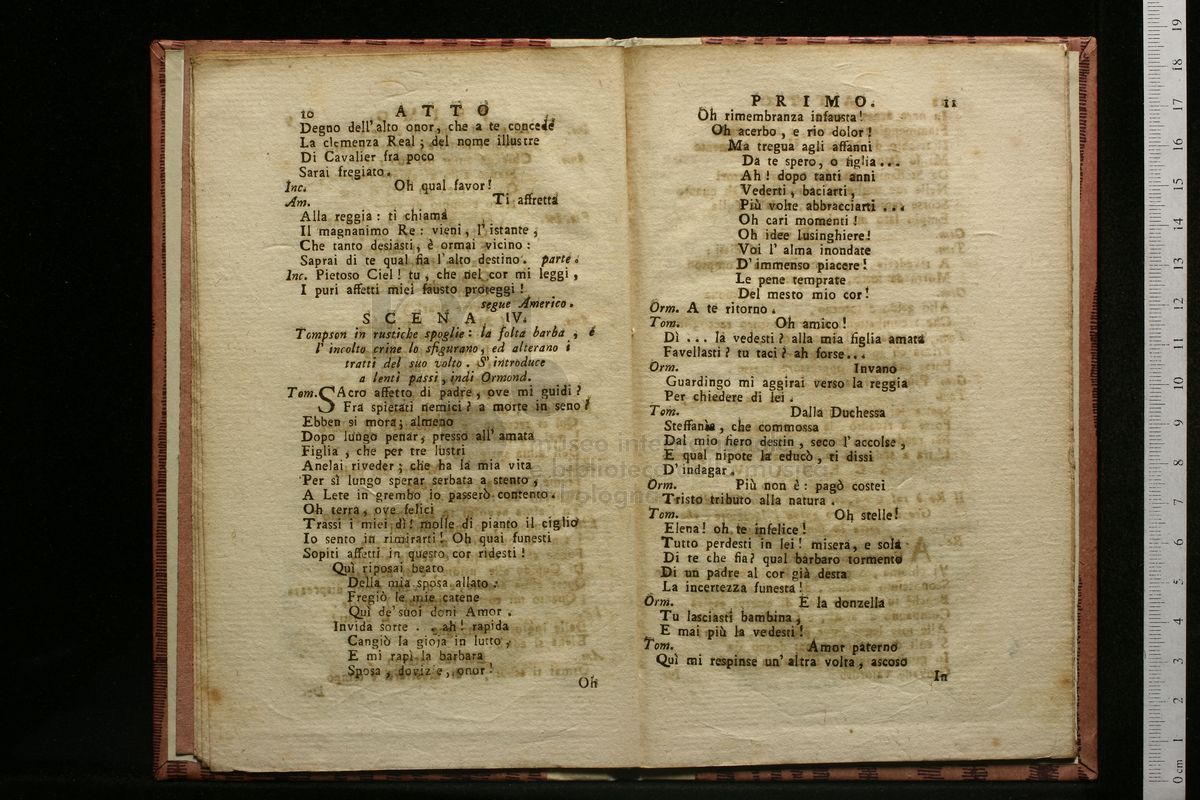 10 ATTO
Degno dell'alto onor, che a te concede
La clemenza Real; del nome illustre
Di Cavalier fra poco
Sarai fregiato.
Inc. Oh qual favor!
Am. Ti affretta
Alla reggia: ti chiama
Il magnanimo Re: vieni, l'istante,
Che tanto desiasti, è ormai vicino:
Saprai di te qual fia l'alto destino. parte.
Inc. Pietoso Ciel! tu, che nel cor mi leggi,
I puri affetti miei fausto proteggi!
segue Americo.
SCENA IV.
Tompson in rustiche spoglie: la folta barba, e
l'incolto crine lo sfigurano, ed alterano i
tratti del suo volto. S'introduce
a lenti passi, indi Ormond.
Tom. SAcro affetto di padre, ove mi guidi?
Fra spietati nemici? a morte in seno?
Ebben si mora; almeno
Dopo lungo penar, presso all'amata
Figlia, che per tre lustri
Anelai riveder; che ha la mia vita
Per sì lungo sperar serbata a stento,
A Lete in grembo io passerò contento.
Oh terra, ove felici
Trassi i miei dì! molle di pianto il ciglio
Io sento in rimirarti! Oh quai funesti
Sopiti affetti in questo cor ridesti!
Quì riposai beato
Della mia sposa allato:
Fregiò le mie catene
Quì de' suoi doni Amor.
Invida sorte . . ah! rapida
Cangiò la gioja in lutto,
E mi rapì la barbara
Sposa, dovizie, onor!
Oh
PRIMO. 11
Oh rimembranza infausta!
Oh acerbo, e rio dolor!
Ma tregua agli affanni
Da te spero, o figlia...
Ah! dopo tanti anni
Vederti, baciarti,
Più volte abbracciarti ...
Oh cari momenti!
Oh idee lusinghiere!
Voi l'alma inondate
D'immenso piacere!
Le pene temprate
Del mesto mio cor!
Orm. A te ritorno.
Tom. Oh amico!
Dì ... la vedesti? alla mia figlia amata
Favellasti? tu taci? ah forse...
Orm. Invano
Guardingo mi aggirai verso la reggia
Per chiedere di lei.
Tom. Dalla Duchessa
Steffania, che commossa
Dal mio fiero destin, seco l'accolse,
E qual nipote la educò, ti dissi
D'indagar.
Orm. Più non è: pagò costei
Tristo tributo alla natura.
Tom. Oh stelle!
Elena! oh te infelice!
Tutto perdesti in lei! misera, e sola
Di te che fia? qual barbaro tormento
Di un padre al cor già desta
La incertezza funesta!
Orm. E la donzella
Tu lasciasti bambina,
E mai più la vedesti!
Tom. Amor paterno
Quì mi respinse un'altra volta, ascoso
In